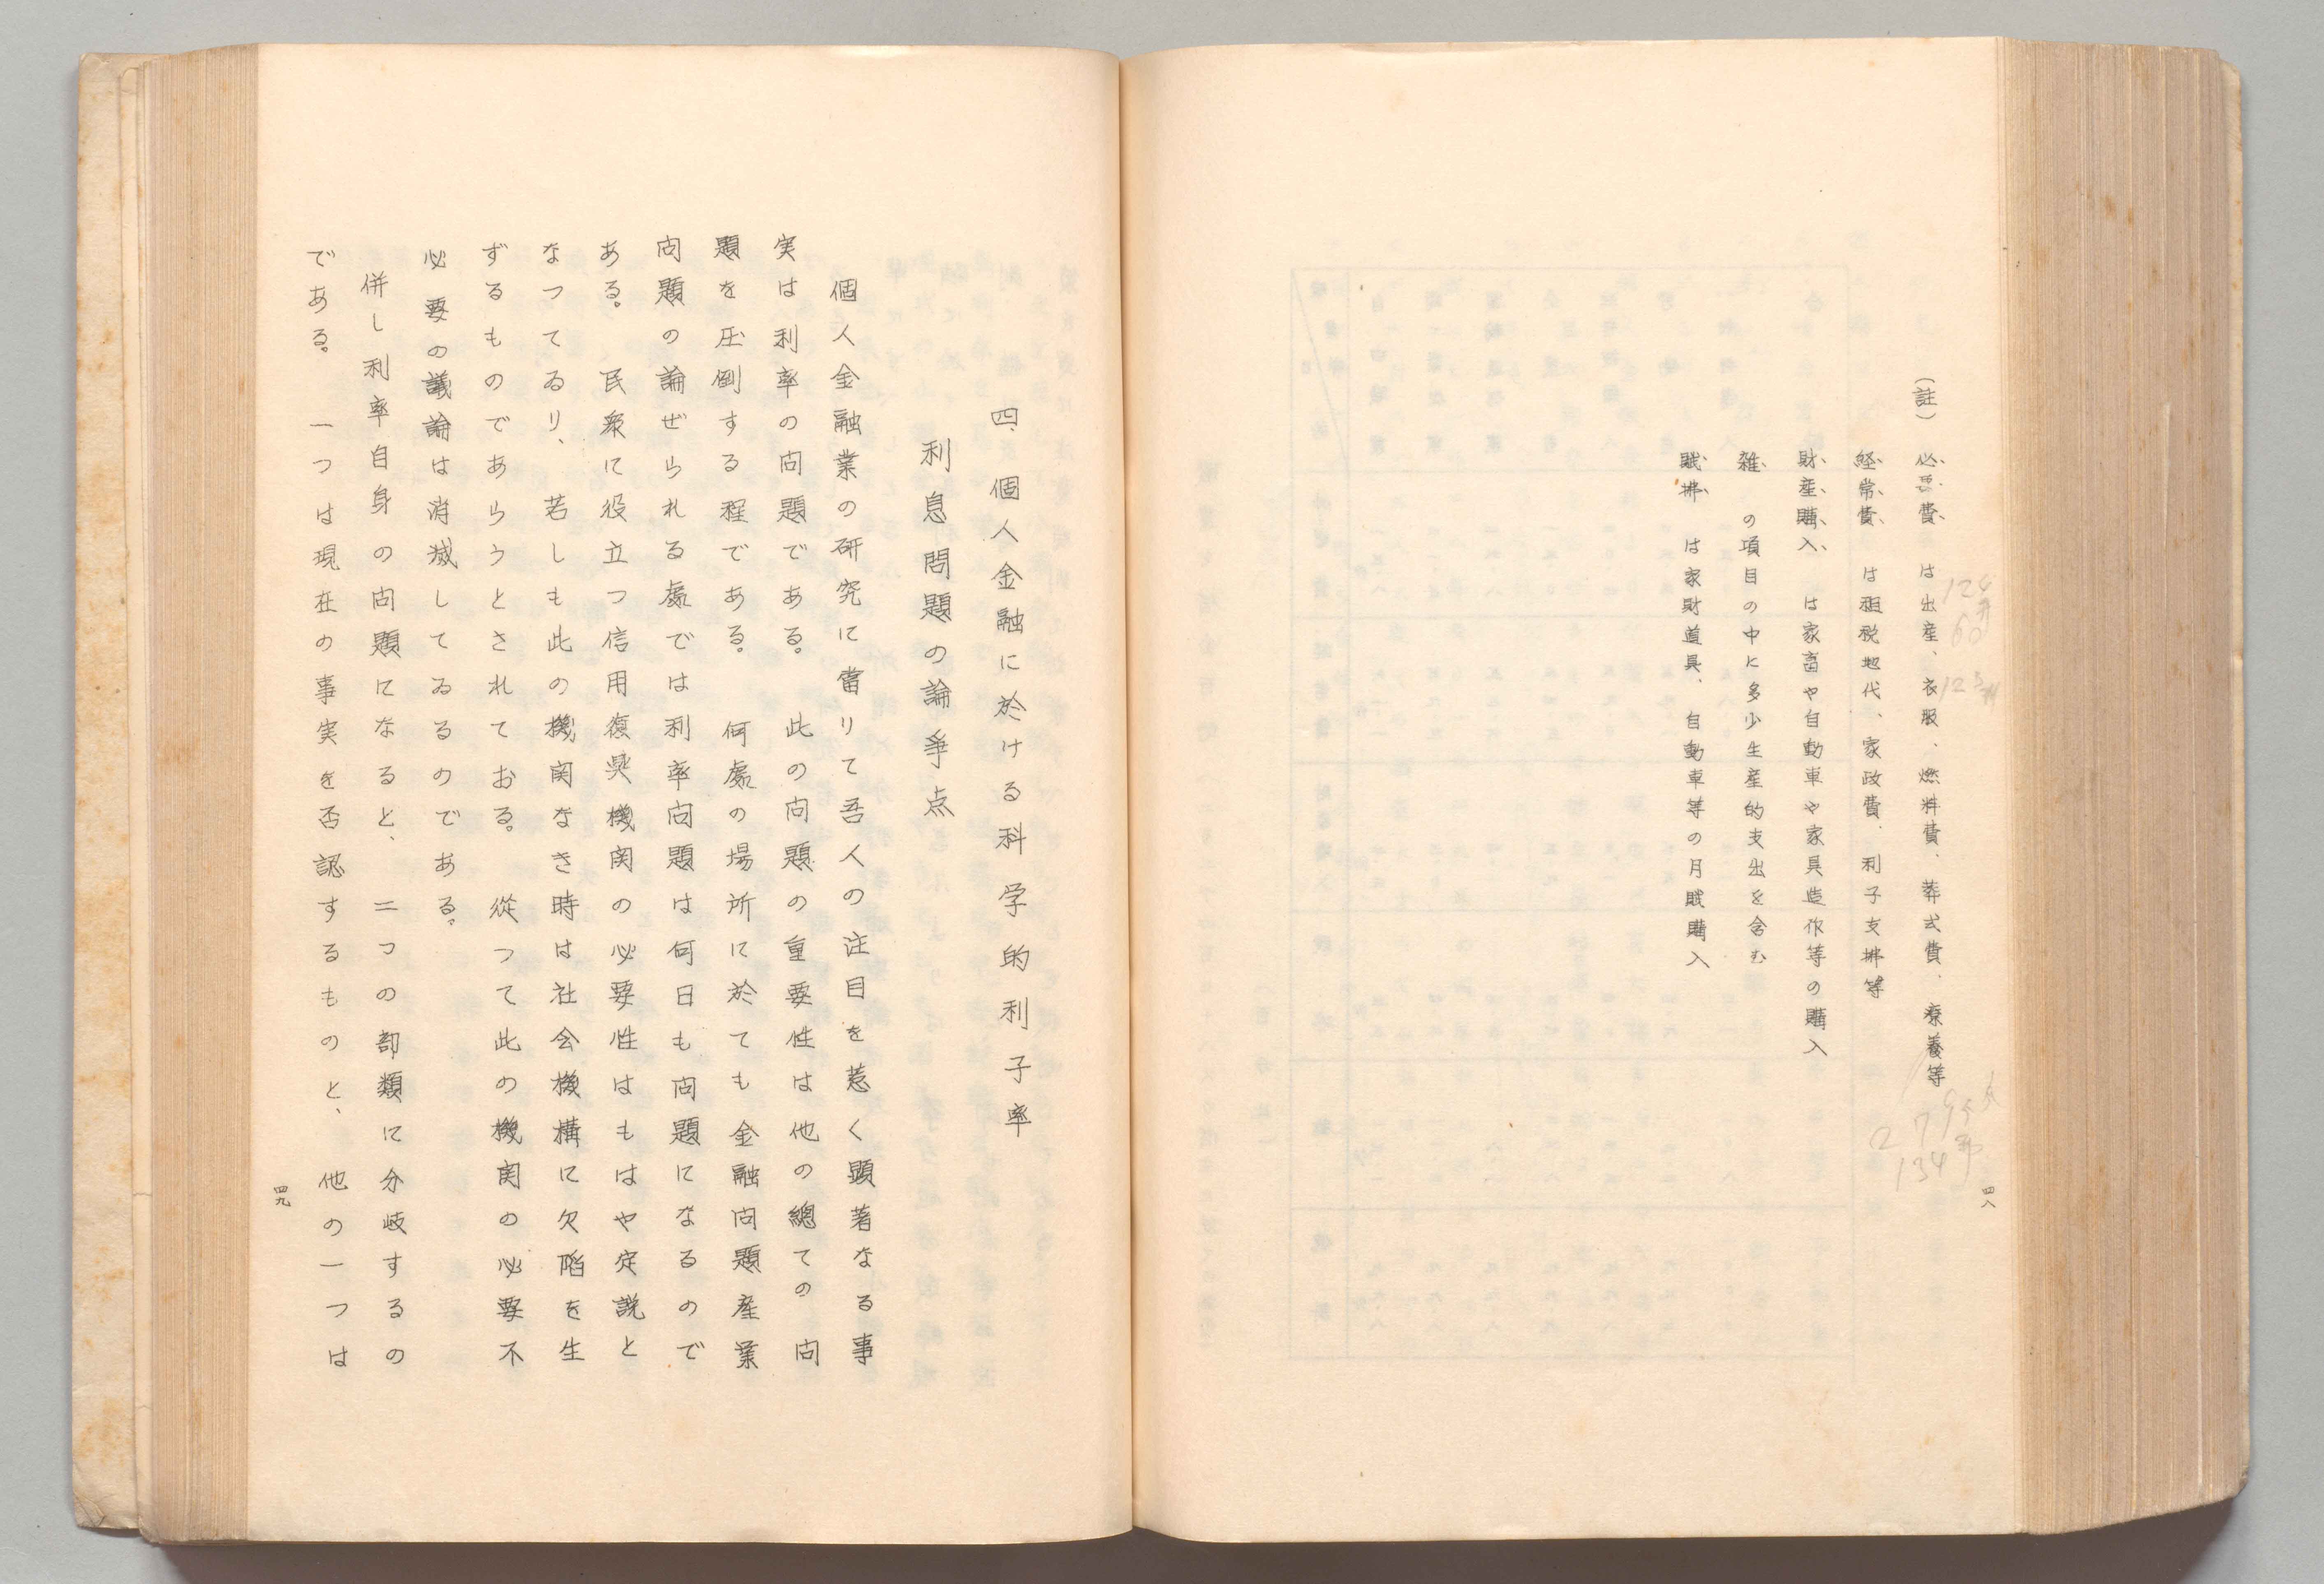 （註）必要費　は出産、衣服、燃料費、葬式費、療養等
経常費　は租税地代、家政費、利子支拂等
財産購入　は家畜や自動車や家具造作等の購入
雑　の項目の中に多少生産的支出を含む
賦拂　は家財道具、自動車等の月賦購入
四八
四、個人金融に於ける科学的利子率
利息問題の論爭点
個人金融業の研究に當りて吾人の注目を惹く顕著なる事
実は利率の問題である。此の問題の重要性は他の總ての問
題を圧倒する程である。何處の場所に於ても金融問題産業
問題の論ぜられる處では利率問題は何日も問題になるので
ある。民衆に役立つ信用復興機関の必要性はもはや定説と
なつてゐり、若しも此の機関なき時は社会機構に欠陥を生
ずるものであらうとされておる。從つて此の機関の必要不
必要の議論は消滅してゐるのである。
併し利率自身の問題になると、二つの部類に分岐するの
である。一つは現在の事実を否認するものと、他の一つは
四九